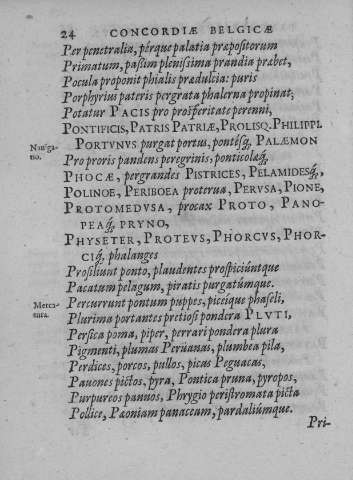 24 CONCORDIÆ BELGICÆ
Per penetralia, pérque palatia præpositorum
Primatum, passim plenissima prandia præbet,
Pocula proponit phialis prædulcia: puris
Porphyrius pateris pergrata phalerna propinat;
Potatur PACIS pro prosperitate perenni,
PONTIFICIS, PATRIS PATRIÆ, PROLISQ. PHILIPPI.
Nauiga-
tio.
PORTVNVS purgat portus, pontésq́, PALÆMON
Pro proris pandens peregrinis; ponticolæq́,
PHOCÆ, pergrandes PISTRICES, PELAMIDESq́,
POLINOE, PERIBOEA proterua, PERVSA, PIONE,
PROTOMEDVSA, procax PROTO, PANO-
PEAq́, PRYNO,
PHYSETER, PROTEVS, PHORCVS, PHOR-
CIq́, phalanges
Prosiliunt ponto, plaudentes prospiciúntque
Pacatum pelagum, piratis purgatúmque.
Merca-
tura.
Percurrunt pontum puppes, piceíque phaseli,
Plurima portantes pretiosi pondera PLVTI,
Persica poma, piper, perrari pondera plura
Pigmenti, plumas Peruanas, plumbea pila,
Perdices, porcos, pullos, picas Peguacas,
Pauones pictos, pyra, Pontica pruna, pyropos,
Purpureos pannos, Phrygio peristromata picta
Pollice, Pæoniam panaceam, pardaliúmque.
Pri-